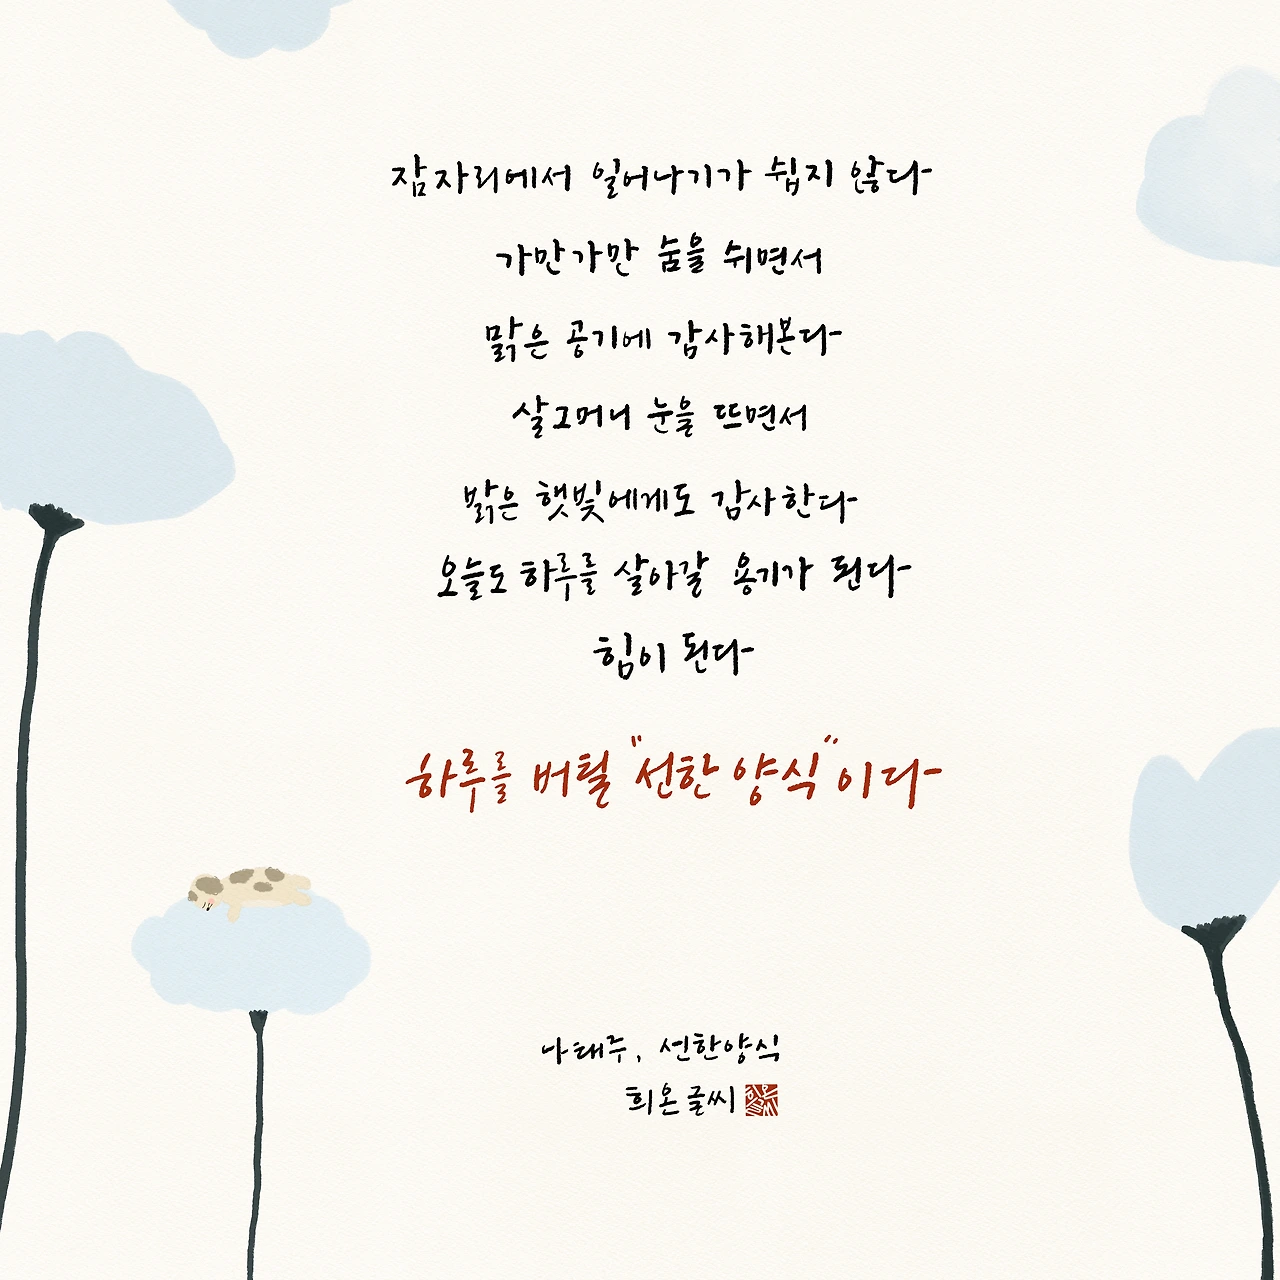 잠자리에서 일어나기가 쉽지 않다
가만가만 숨을 쉬면서
맑은 공기에 감사해본다
살그머니 눈을 뜨면서
밝은 햇빛에게도 감사한다
오늘도 하루를 살아갈 용기가 된다
힘이 된다
하루를 버틸 "선한 양식"이다
나태주, 선한양식
희온글씨